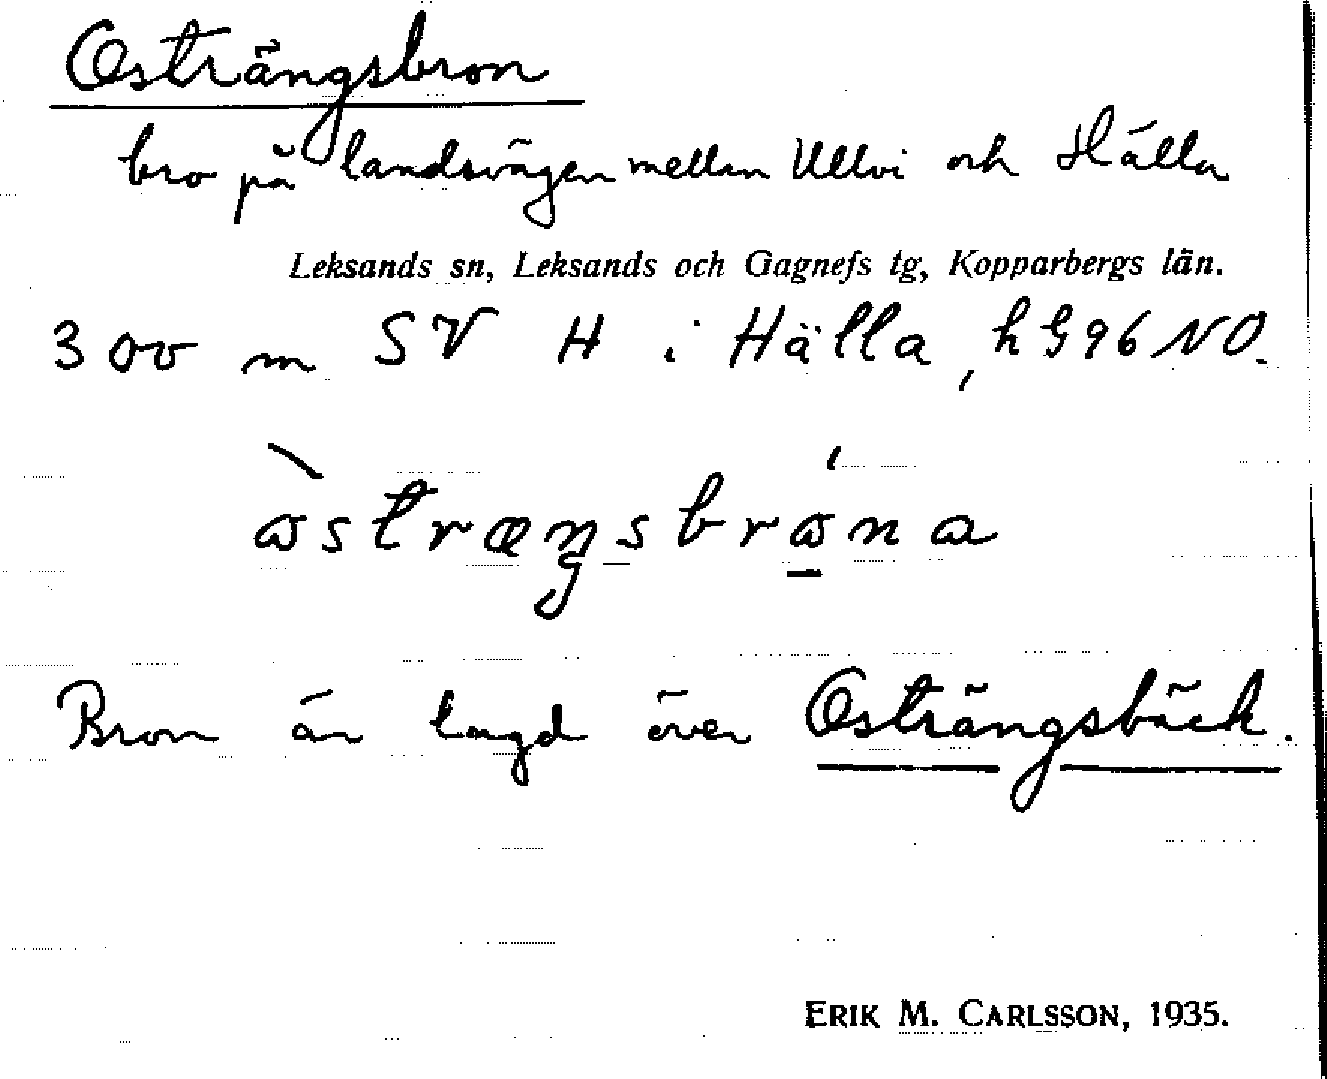 Osträngsbron
bro på landsvägen mellan Ullvi och Hälla
Leksands sn, Leksands och Gagnefs tg, Kopparbergs län.
300 m SV H i Hälla, hG96NO.
åstræŋsbråna
Bron är lagd över Osträngsbäck.
ERIK M. CARLSSON, 1935.